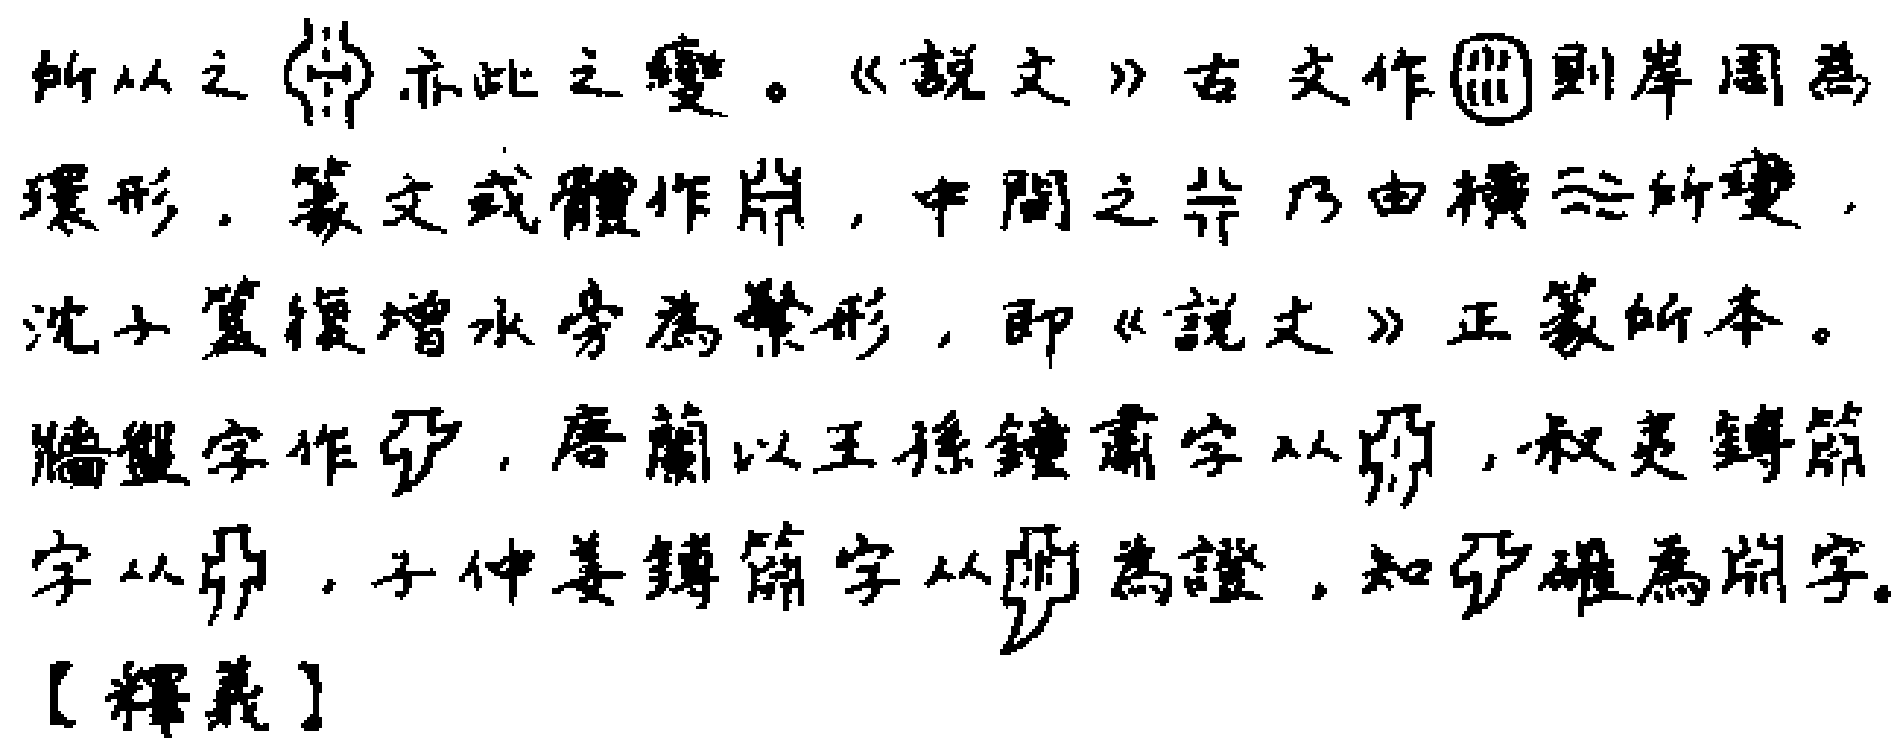 所从之亦此之變。《説文》古文作則岸周為
環形．篆文或體作𣶒，中間之乃由橫所變，
沈子簋復增水旁為繁形，即《説文》正篆所本。
牆盤字作，唐蘭以王孫鐘肅字从，叔夷鎛簫
字从，子仲姜鎛簫字从為證，知確為𣶒字。
【釋義】